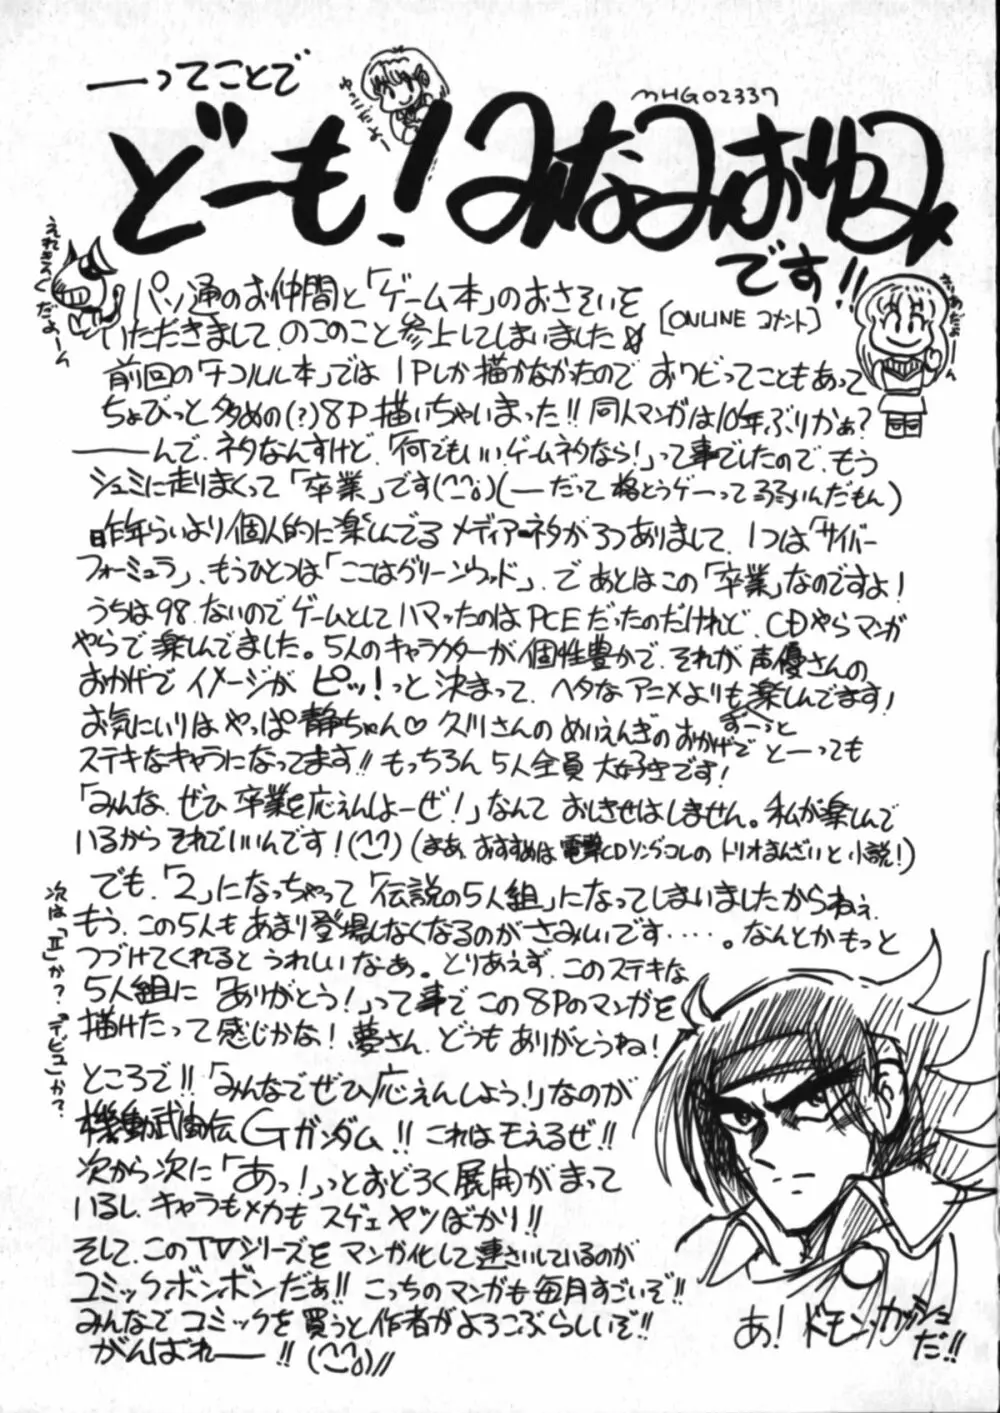 ──ってことで
ゆっこだよー
MHG02337
どーも！みなみおゆみ
です!!
えれきんぐだよーん
パソ通のお仲間と「ゲーム本」のおさそいを
いただきまして、のこのこと参上してしまいました
[ONLINE コメント]
前回の「ナコルル本」では 1Pしか描かなかったので おワビってこともあって
ちょびっと多めの(?)8P描いちゃいまった!! 同人マンガは10年ぶりかぁ?
───んで、ネタなんすけど、「何でもいい、ゲームネタなら!」って事でしたので、もう
シュミに走りまくって「卒業」です(^^;)(─だって格とうゲーって弱いんだもん)
昨年らいより個人的に楽しんでるメディアネタが3つありまして、1つは「サイバー
フォーミュラ」、もうひとつは「ここはグリーンウッド」、で あとはこの「卒業」なのですよ!
うちは98 ないのでゲームとしてハマったのは PCE だったのだけれど、CDやらマンガ
やらで楽しんでました。5人のキャラクターが個性豊かで、それが声優さんの
おかげでイメージが ピッ!っと決まって、ヘタなアニメよりも楽しんでます!
ずーっと
お気にいりは やっぱ静ちゃん♡ 久川さんの めいえんぎの おかげで と──っても
ステキなキャラになってます!! もっちろん 5人全員 大好きです!
「みんな、ぜひ 卒業を応えんしよーぜ!」なんて おしきせはしません。私が楽しんで
いるから それでいいんです!(^^) (まあ、おすすめは 電撃CDソングコレの トリオまんざいと 小説!)
でも、「2」になっちゃって「伝説の5人組」になってしまいましたからねぇ
もう、この5人も あまり登場しなくなるのがさみしいです・・・・。なんとかもっと
つづけてくれると うれしいなあ。とりあえず、このステキな
5人組に「ありがとう!」って事で この8Pのマンガを
描けたって感じかな! 夢さん、どうもありがとうね!
次は「Ⅱ」か? 「デビュ」か?
ところで!!「みんなでぜひ応えんしよう!」なのが
機動武闘伝Gガンダム!! これはモえるぜ!!
次から次に「あっ!」っとおどろく展開がまって
いるし、キャラもメカも スゲェ ヤツばかり!!
そして、このTVシリーズを マンガ化して連さいしているのが
コミックボンボンだぁ!! こっちのマンガも毎月すごいぞ!!
みんなでコミックを買うと作者がよろこぶらしいぞ!!
がんばれ──!! (^^;)//
あ! ドモン・カッシュ
だ!!